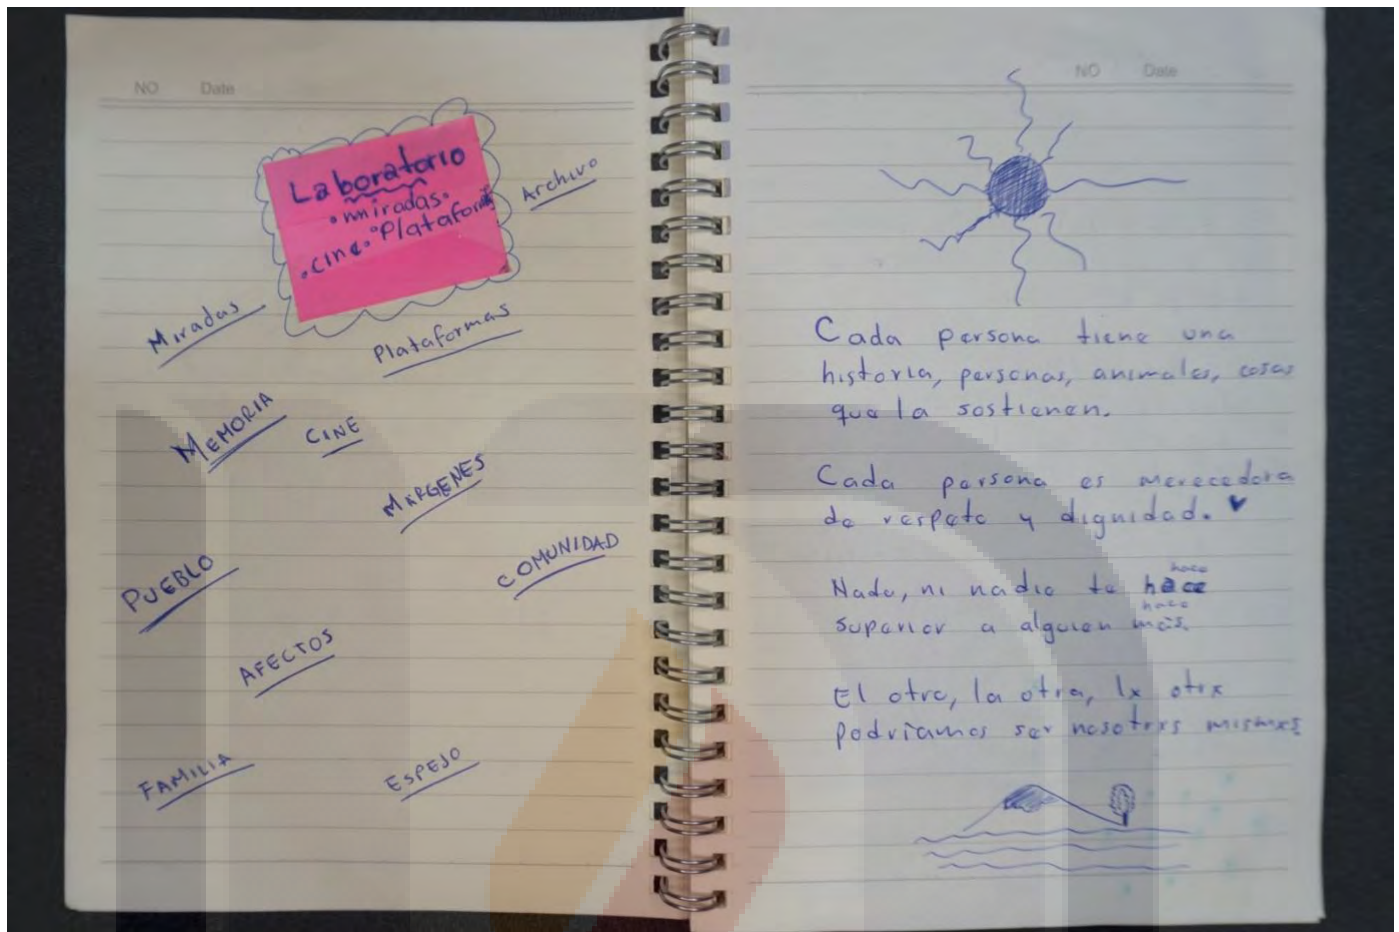 NO Date
Laboratorio
•miradas•
•cine• •Plataform
Archivo
Miradas
Plataformas
MEMORIA
CINE
MÁRGENES
COMUNIDAD
PUEBLO
AFECTOS
FAMILIA
ESPEJO
NO Date
Cada persona tiene una
historia, personas, animales, cosas
que la sostienen.
Cada persona es merecedora
de respeto y dignidad. ♥
hace
Nada, ni nadie te hace
hace
superior a alguien más.
El otro, la otra, lx otrx
podríamos ser nosotrxs mismxs